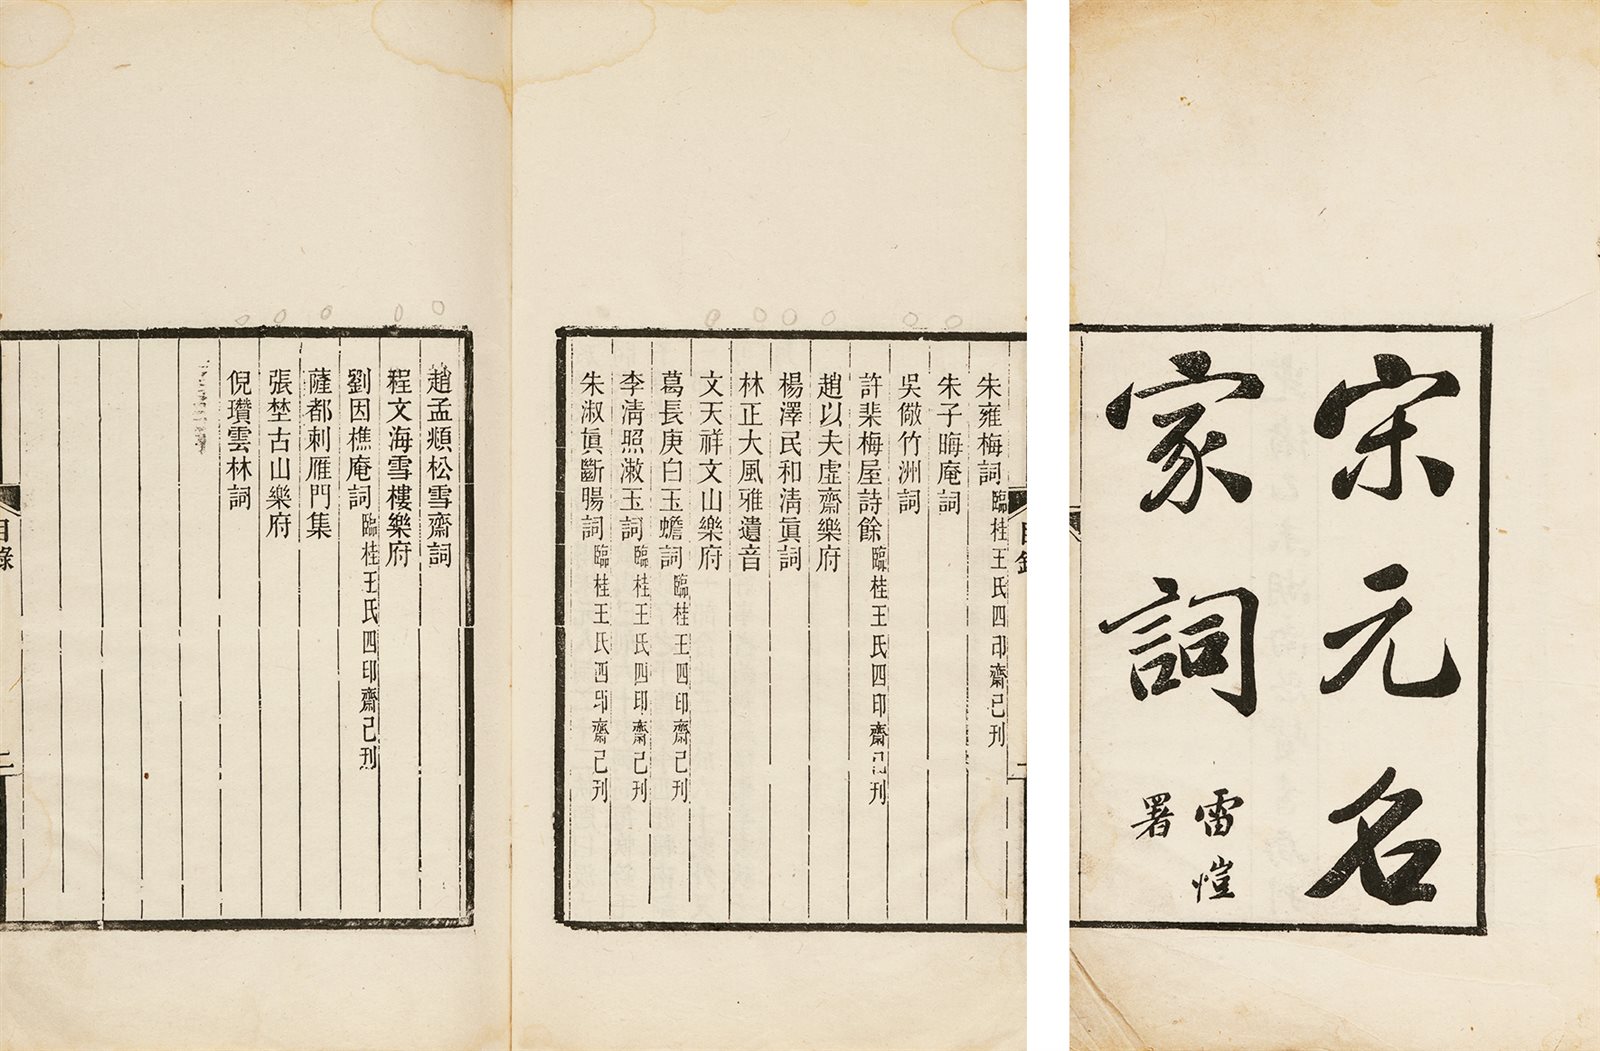 宋元名
家詞
雷愷
署
朱雍梅詞臨桂王氏四印齋已刊
朱子晦庵詞
吳儆竹洲詞
許棐梅屋詩餘臨桂王氏四印齋已刊
趙以夫虛齋樂府
楊澤民和清眞詞
林正大風雅遺音
文天祥文山樂府
葛長庚白玉蟾詞臨桂王四印齋已刊
李清照漱玉詞臨桂王氏四印齋已刊
朱淑眞斷腸詞臨桂王氏四印齋已刊
趙孟頫松雪齋詞
程文海雪樓樂府
劉因樵庵詞臨桂王氏四印齋已刊
薩都剌雁門集
張埜古山樂府
倪瓚雲林詞
目錄
二